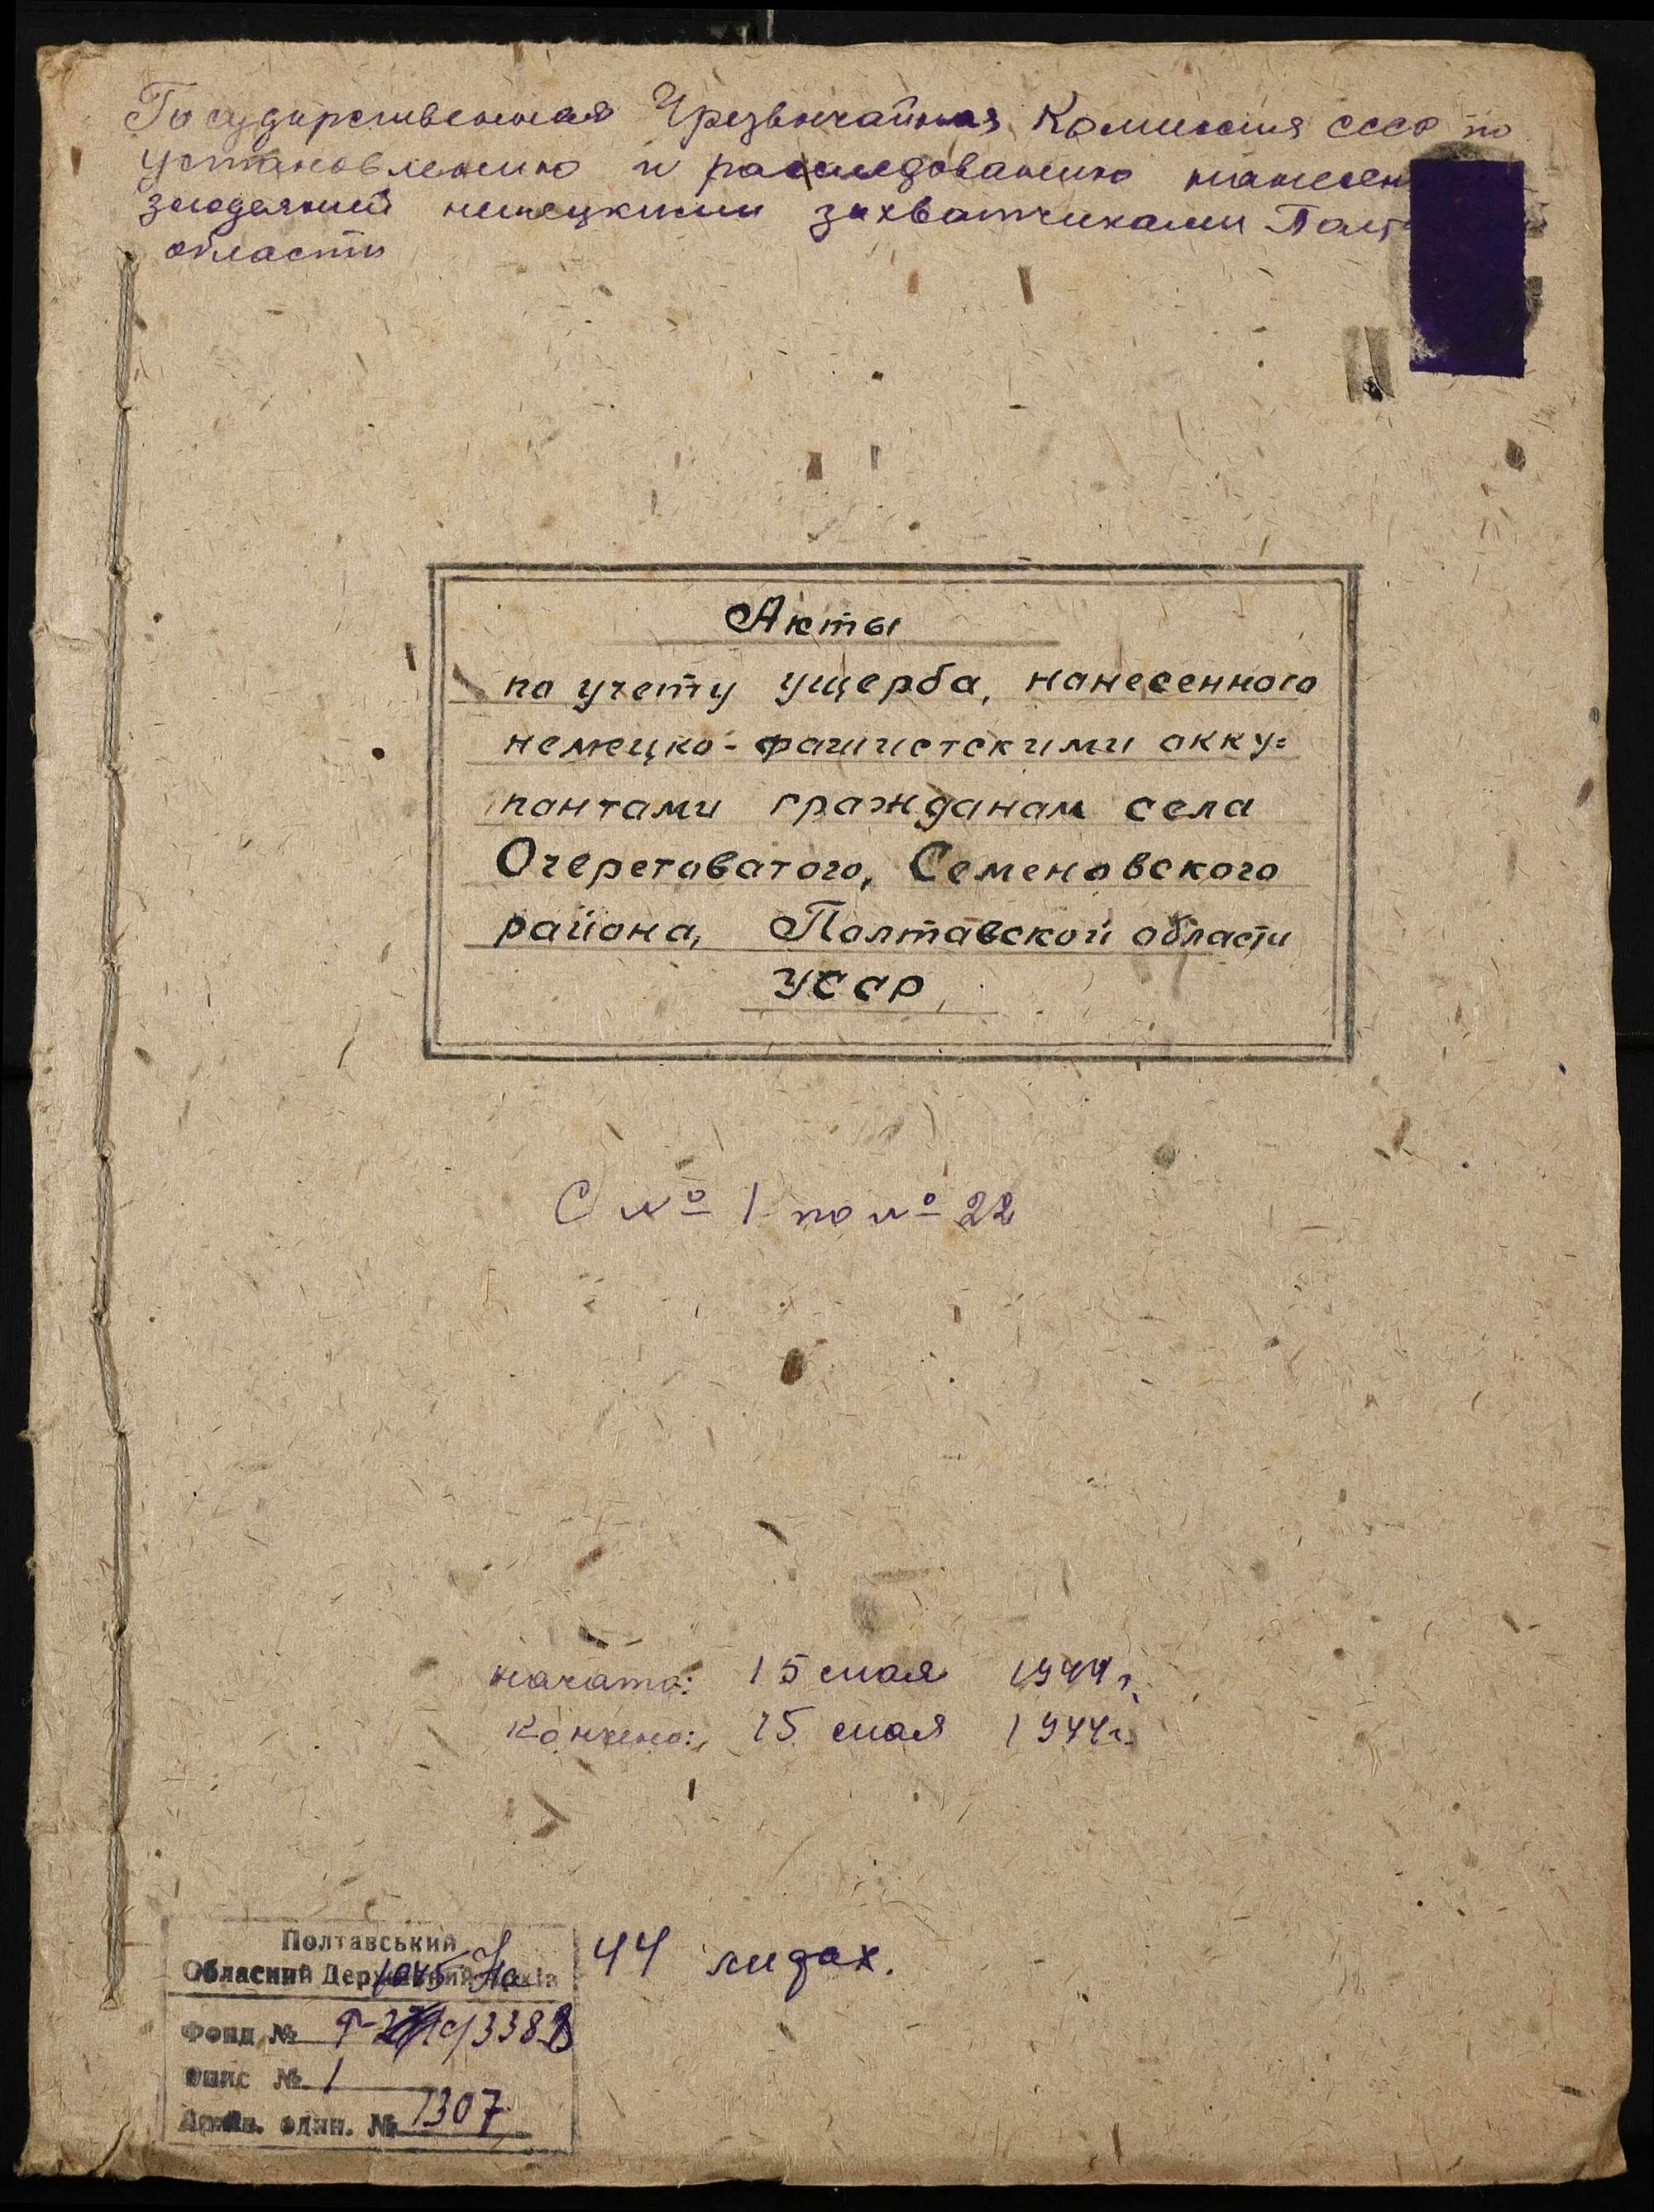 Государственная Чрезвычайная Комиссия СССР по
установлению и расследованию нанесен
злодеяний немецкими захватчиками Полт
области
Акты
по учету ущерба, нанесенного
немецко-фашистскими окку=
пантами гражданам села
Очеретоватого, Семеновского
района, Полтавской области
УССР
С № 1 по № 22
начато: 15 мая 1944 г.
Кончено: 15 мая 1944 г.
Полтавський
Обласний Державний Архів
На 44 лидах.
Фонд № Р-3388
Опис № 1
Архів. один. № 1307